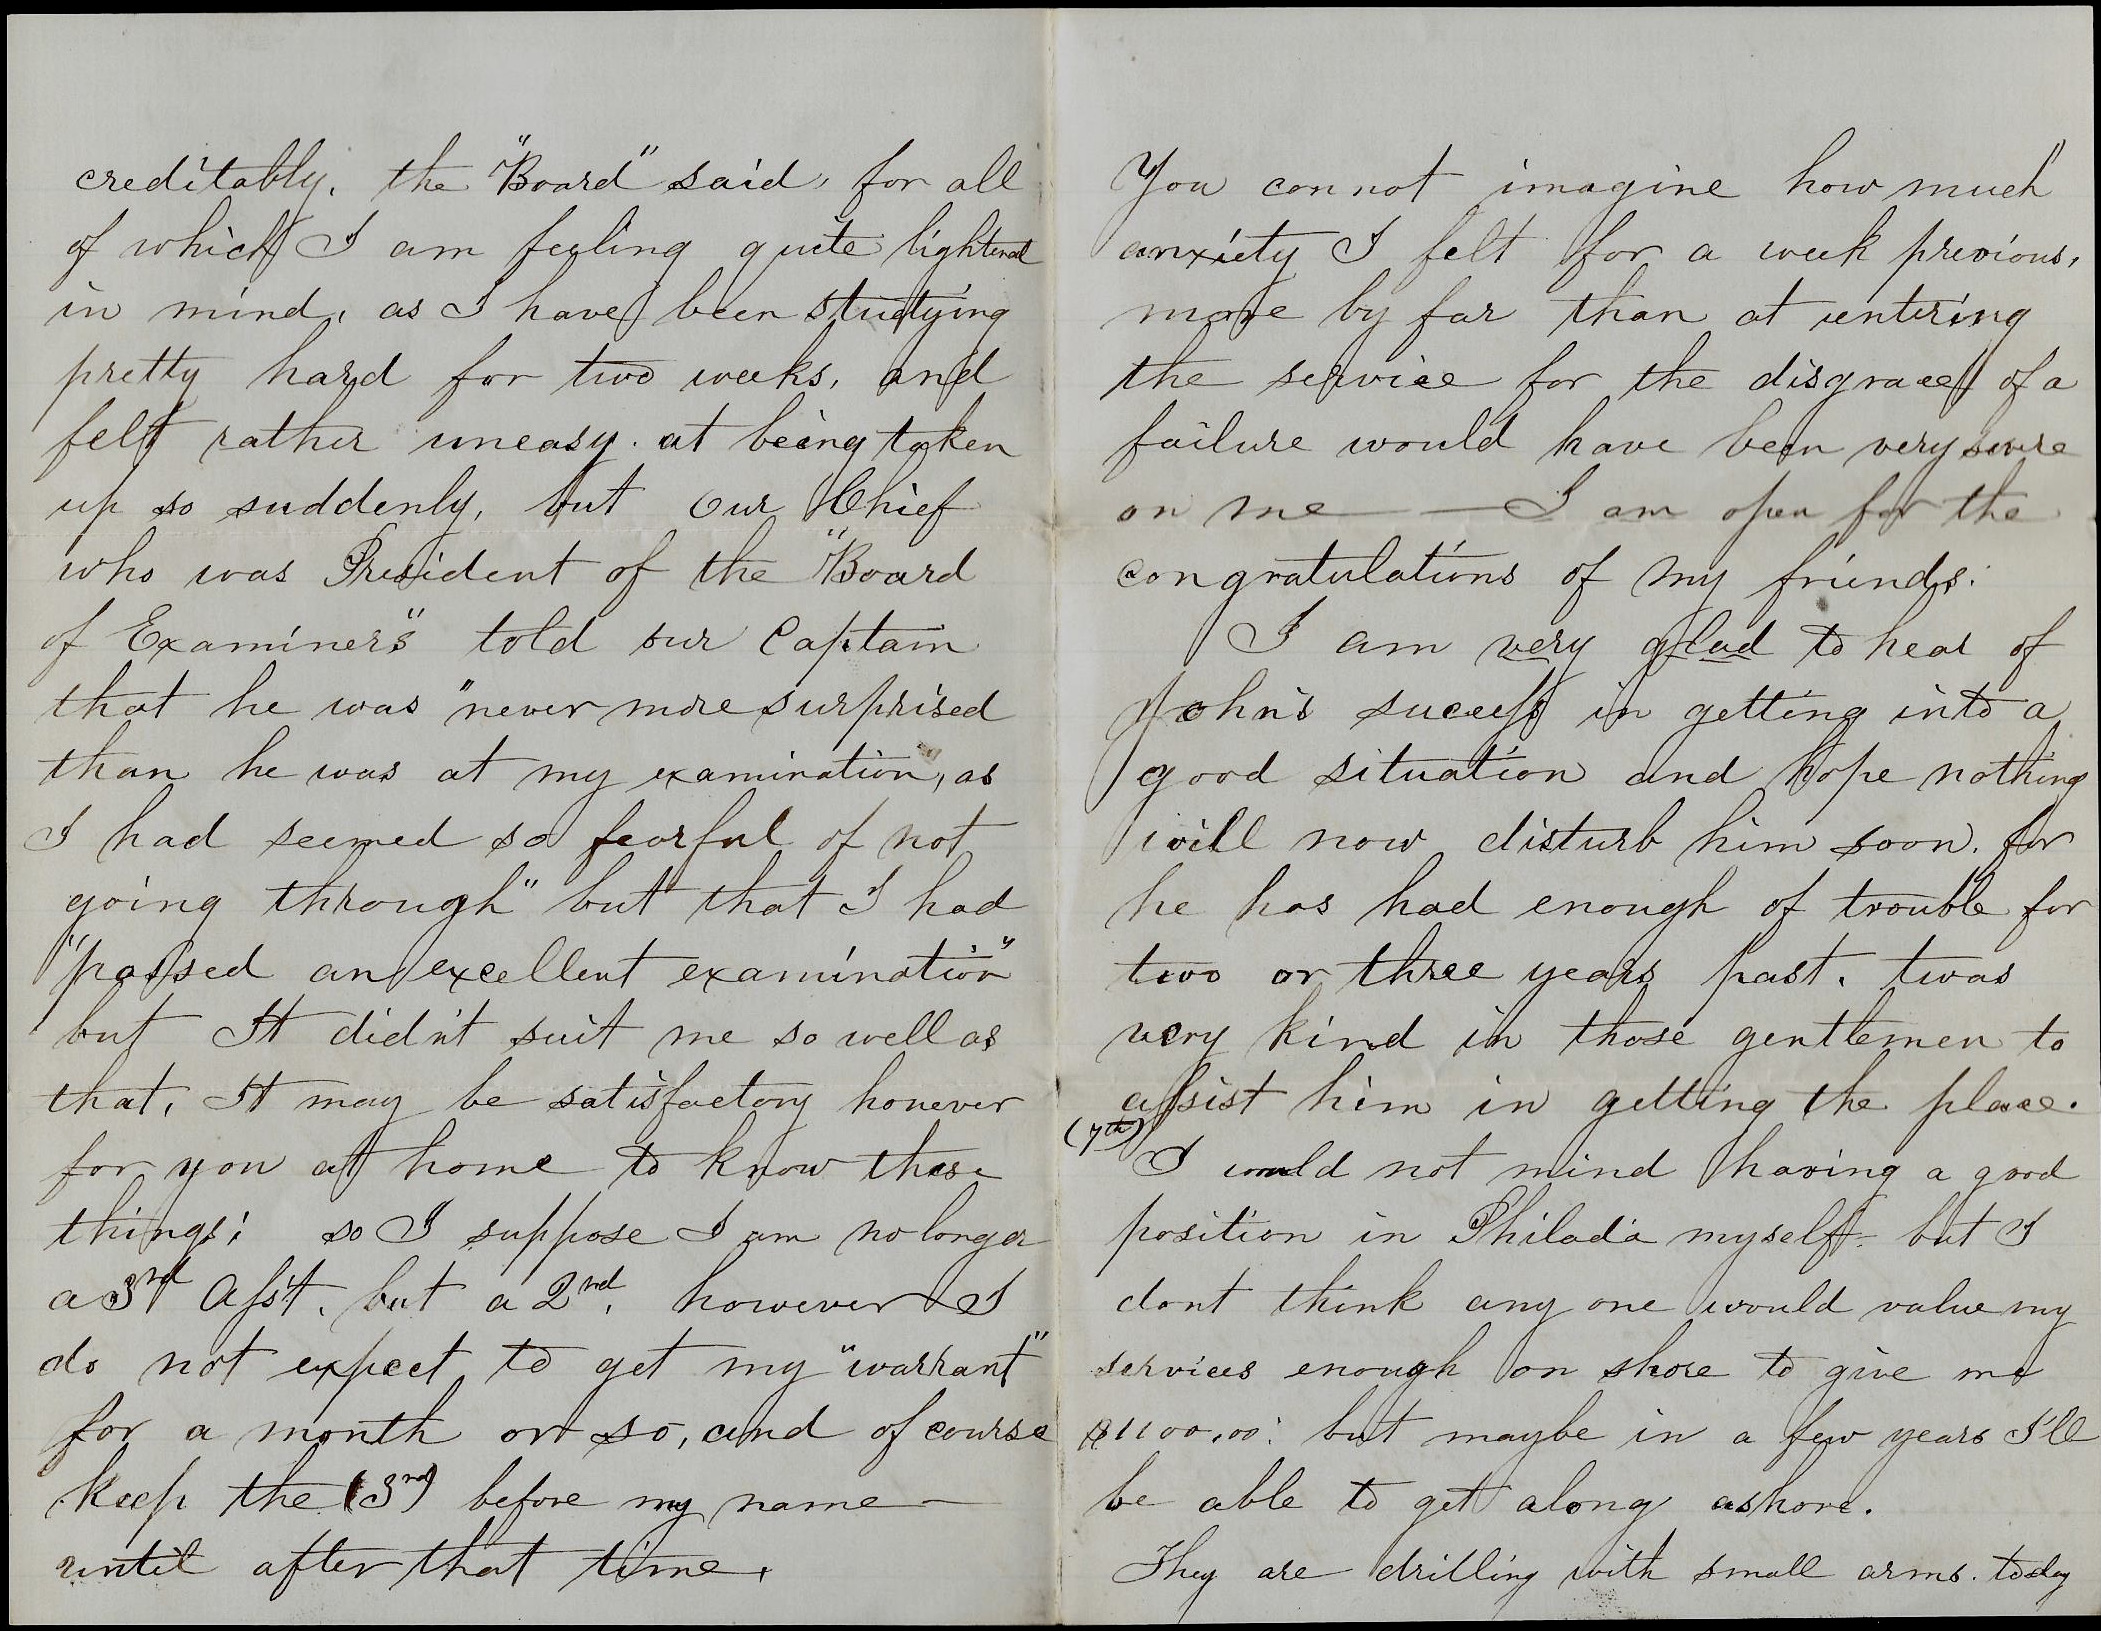 creditably, the "Board" said, for all
of which I am feeling quite lightened
in mind, as I have been studying
pretty hard for two weeks, and
felt rather uneasy. at being taken
up so suddenly, but our Chief
who was President of the "Board
of Examiners" told our Captain
that he was "never more surprised
than he was at my examination, as
I had seemed so fearful of not
going through" but that I had
"passed an excellent examination"
but It didn't suit me so well as
that, It may be satisfactory however
for you at home to know these
things; so I suppose I am no longer
a 3rd Ass't. but a 2nd, however I
do not expect to get my "warrant"
for a month or so, and of course
keep the (3rd) before my name —
until after that time.
You can not imagine how much
anxiety I felt for a week previous,
more by far than at entering
the service for the disgrace of a
failure would have been very severe
on me — I am open for the
congratulations of my friends.
I am very glad to hear of
John's success in getting into a
good situation and hope nothing
will now disturb him soon. for
he has had enough of trouble for
two or three years past. twas
very kind in those gentlemen to
assist him in getting the place.
(7th)
I would not mind having a good
position in Philad'a myself. but I
dont think any one would value my
services enough on shore to give me
$1100,00: but maybe in a few years I'll
be able to get along ashore.
They are drilling with small arms. today